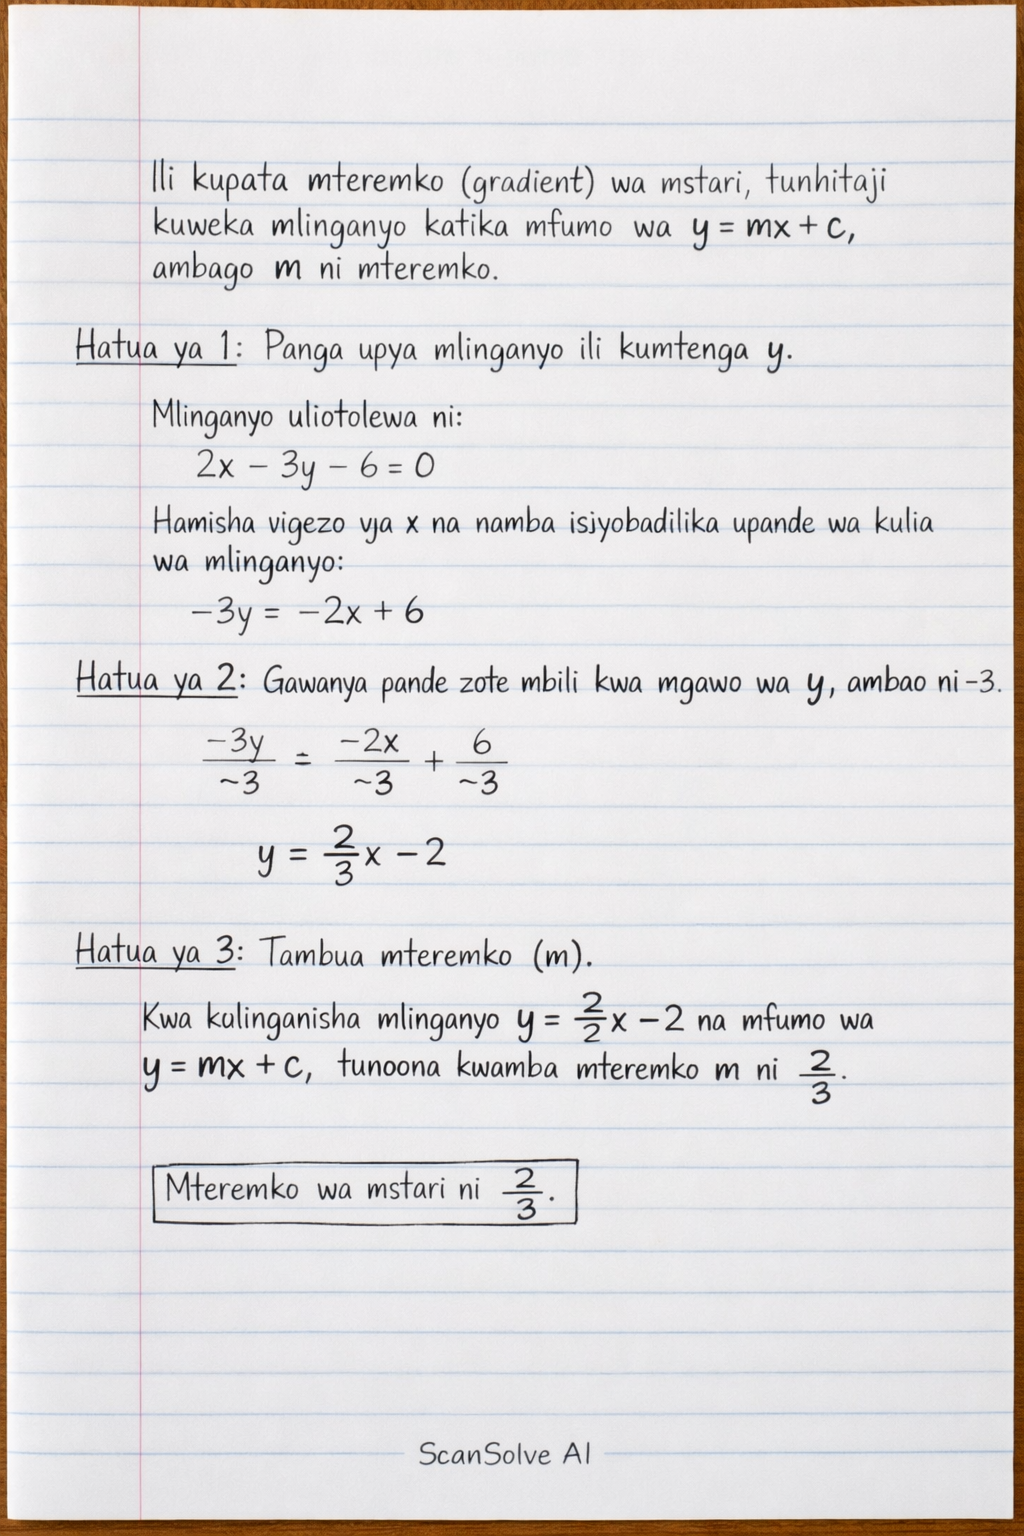 Ili kupata mteremko (gradient) wa mstari, tunhitaji
kuweka mlinganyo katika mfumo wa y = mx + c,
ambago m ni mteremko.
Hatua ya 1: Panga upya mlinganyo ili kumtenga y.
Mlinganyo uliotolewa ni:
2x − 3y − 6 = 0
Hamisha vigezo vja x na namba isiyobadilika upande wa kulia
wa mlinganyo:
−3y = −2x + 6
Hatua ya 2: Gawanya pande zote mbili kwa mgawo wa y, ambao ni −3.
−3y/~3 = −2x/~3 + 6/~3
y = 2/3x − 2
Hatua ya 3: Tambua mteremko (m).
Kwa kulinganisha mlinganyo y = 2/2x − 2 na mfumo wa
y = mx + c, tunoona kwamba mteremko m ni 2/3.
Mteremko wa mstari ni 2/3.
ScanSolve AI